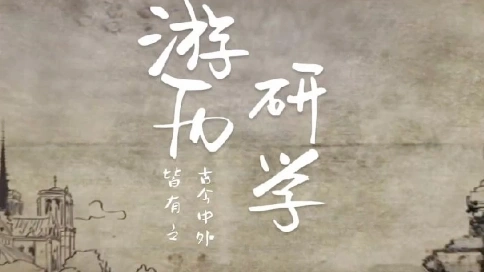 游历
研学
古今中外
皆有之